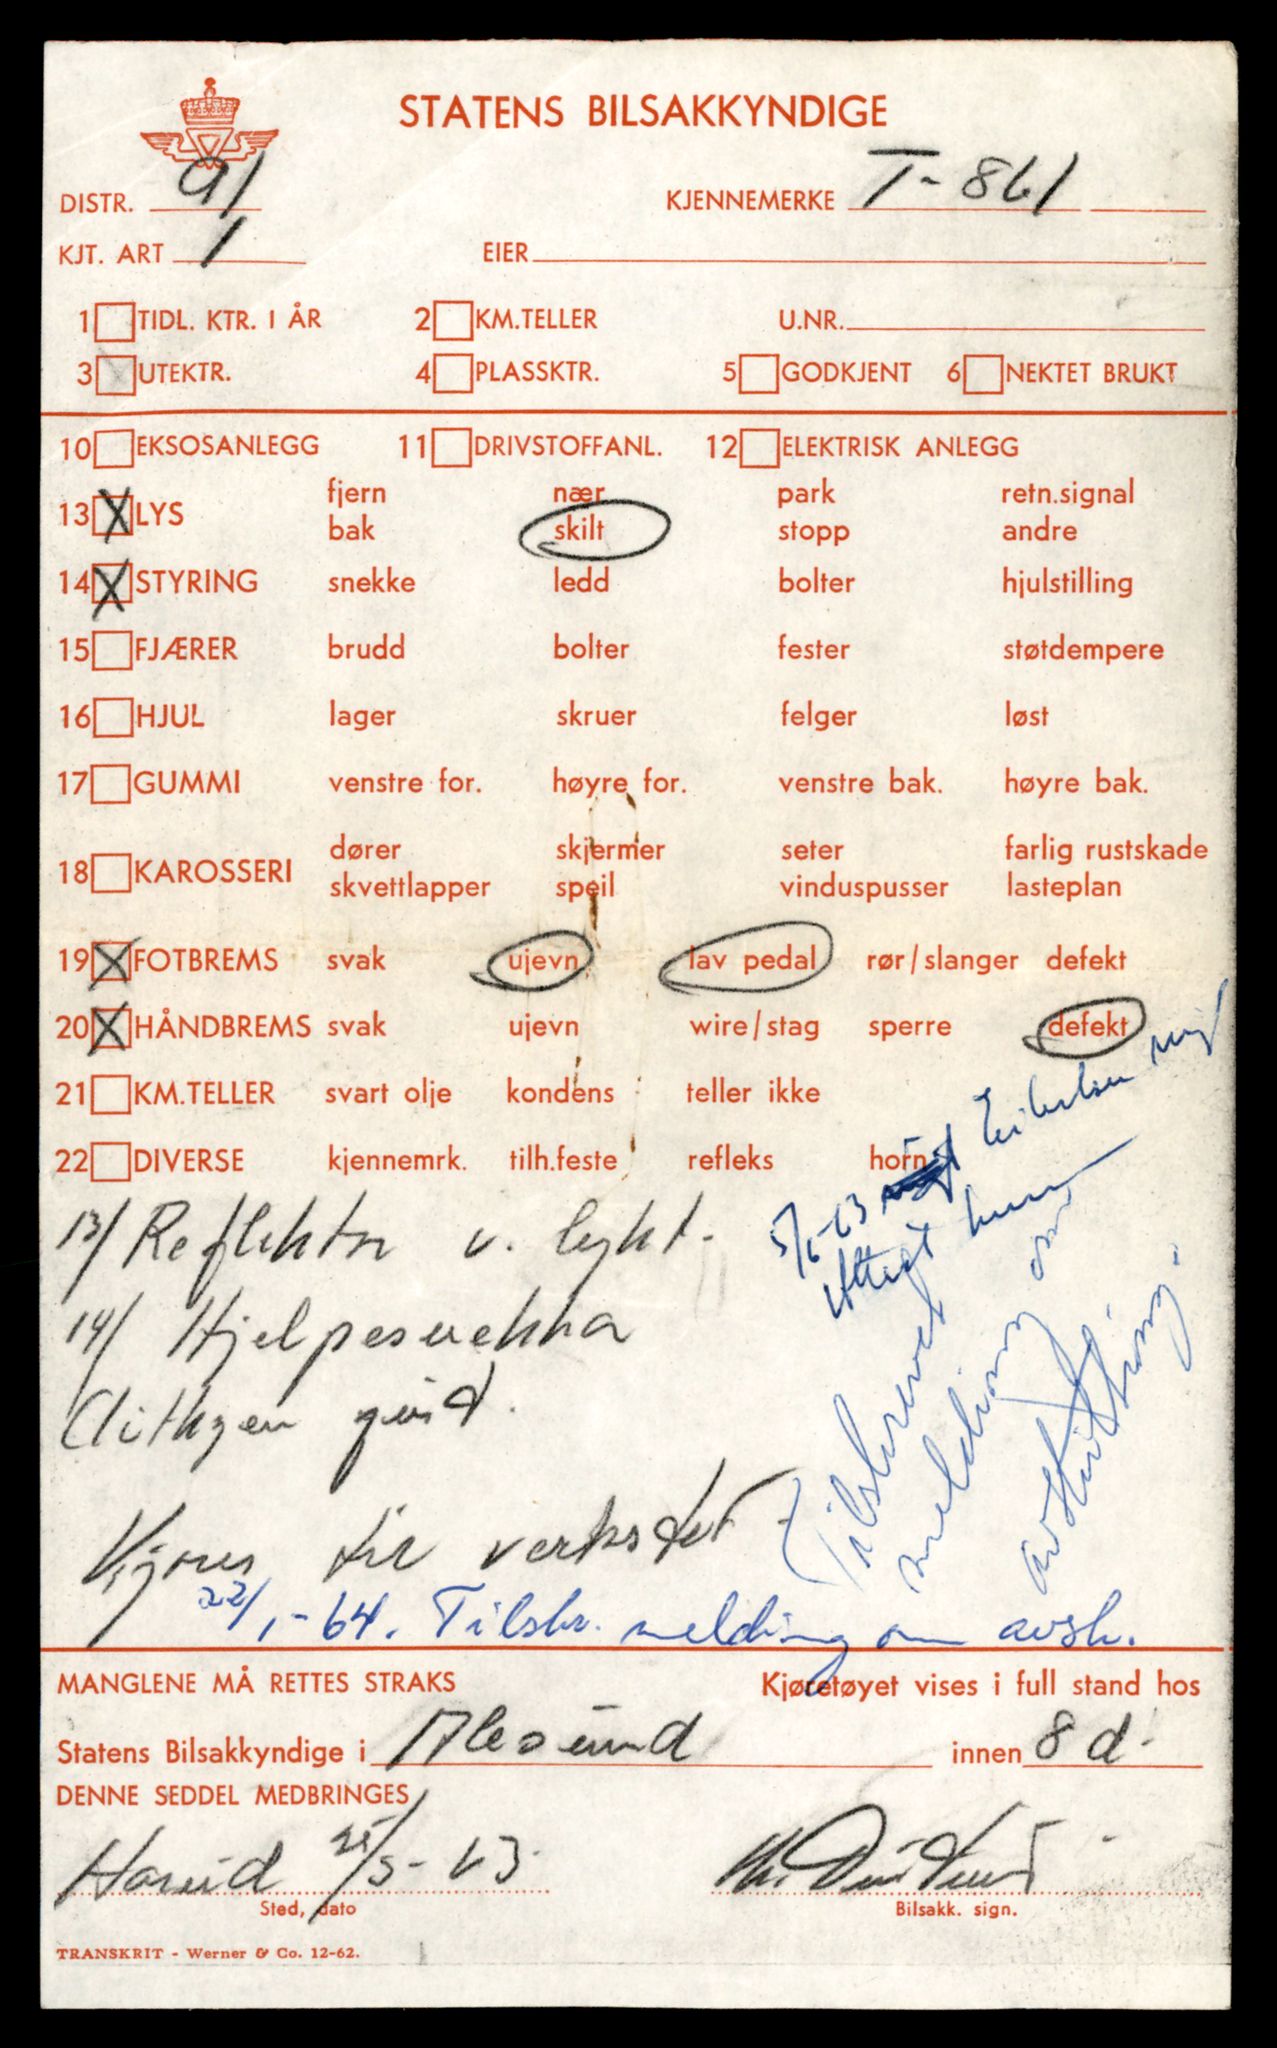 STATENS BILSAKKYNDIGE
DISTR. 91
KJENNEMERKE T-861
KJT. ART 1
EIER
1 TIDL. KTR. I ÅR 2 KM.TELLER U.NR.
3 UTEKTR. 4 PLASSKTR. 5 GODKJENT 6 NEKTET BRUKT
10 EKSOSANLEGG 11 DRIVSTOFFANL. 12 ELEKTRISK ANLEGG
fjern nær park retn.signal
13 X LYS
bak skilt stopp andre
14 X STYRING snekke ledd bolter hjulstilling
15 FJÆRER brudd bolter fester støtdempere
16 HJUL lager skruer felger løst
17 GUMMI venstre for. høyre for. venstre bak. høyre bak.
dører skjermer seter farlig rustskade
18 KAROSSERI
skvettlapper speil vinduspusser lasteplan
19 X FOTBREMS svak ujevn lav pedal rør/slanger defekt
20 X HÅNDBREMS svak ujevn wire/stag sperre defekt
21 KM.TELLER svart olje kondens teller ikke
22 DIVERSE kjennemrk. tilh.feste refleks horn
13/ Reflektor v. lykt.
14/ Hjelpesnekka
5/6-63
Tilskrevet
melding om
avskilting.
til verksted
22/1-64. Tilskr. melding om avsk.
MANGLENE MÅ RETTES STRAKS Kjøretøyet vises i full stand hos
Statens Bilsakkyndige i Ålesund innen 8 d.
DENNE SEDDEL MEDBRINGES
Hareid 25/5-63.
Sted, dato
Bilsakk. sign.
TRANSKRIT - Werner & Co. 12-62.